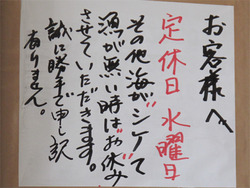 お客様へ
定休日 水曜日
その他海がシケて
漁が無い時はお休み
させていただきます。
誠に勝手で申し訳
ありません。